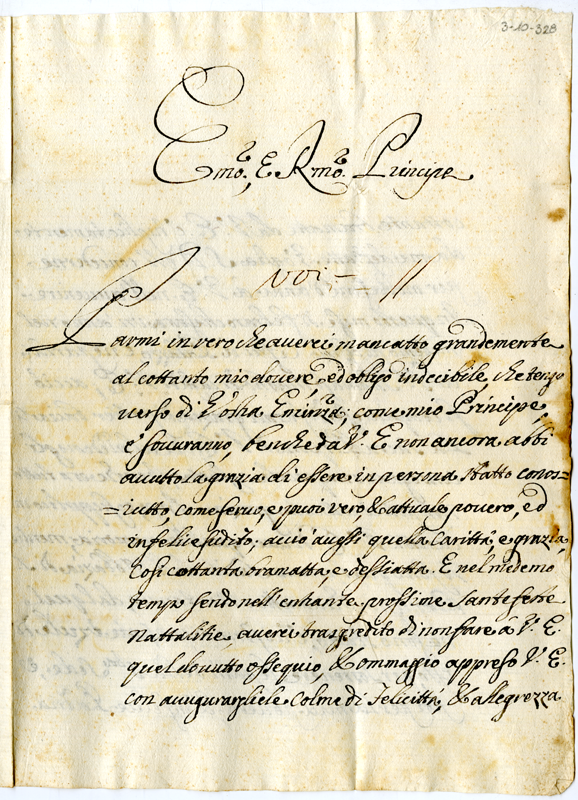 3-10-328
Emo, E Rmo. Principe
Parmi in vero che averei mancatto grandemente
al cottanto mio dovere, ed obligo indecibile, che tengo
verso di V'ostra Eminza; come mio Principe,
e' souuranno, benche da V. E non ancora abbi
auutto la grazia di essere in persona statto conos=
=iutto, come seruo, e puoi vero, & attuale pouero, ed
infelice sudito; acciò augli quella Carittà, e grazia,
Cosi cottanta bramatta, e dessiatta. E nel medemo
tempo sendo nell' enhante prossime Sante feste
Nattalitie, auerei trasgredito di non fare â V. E.
quel douutto ossequio, & ommaggio appreso V. E.
con auugurargliele Colme di Felicittà, & allegrezza